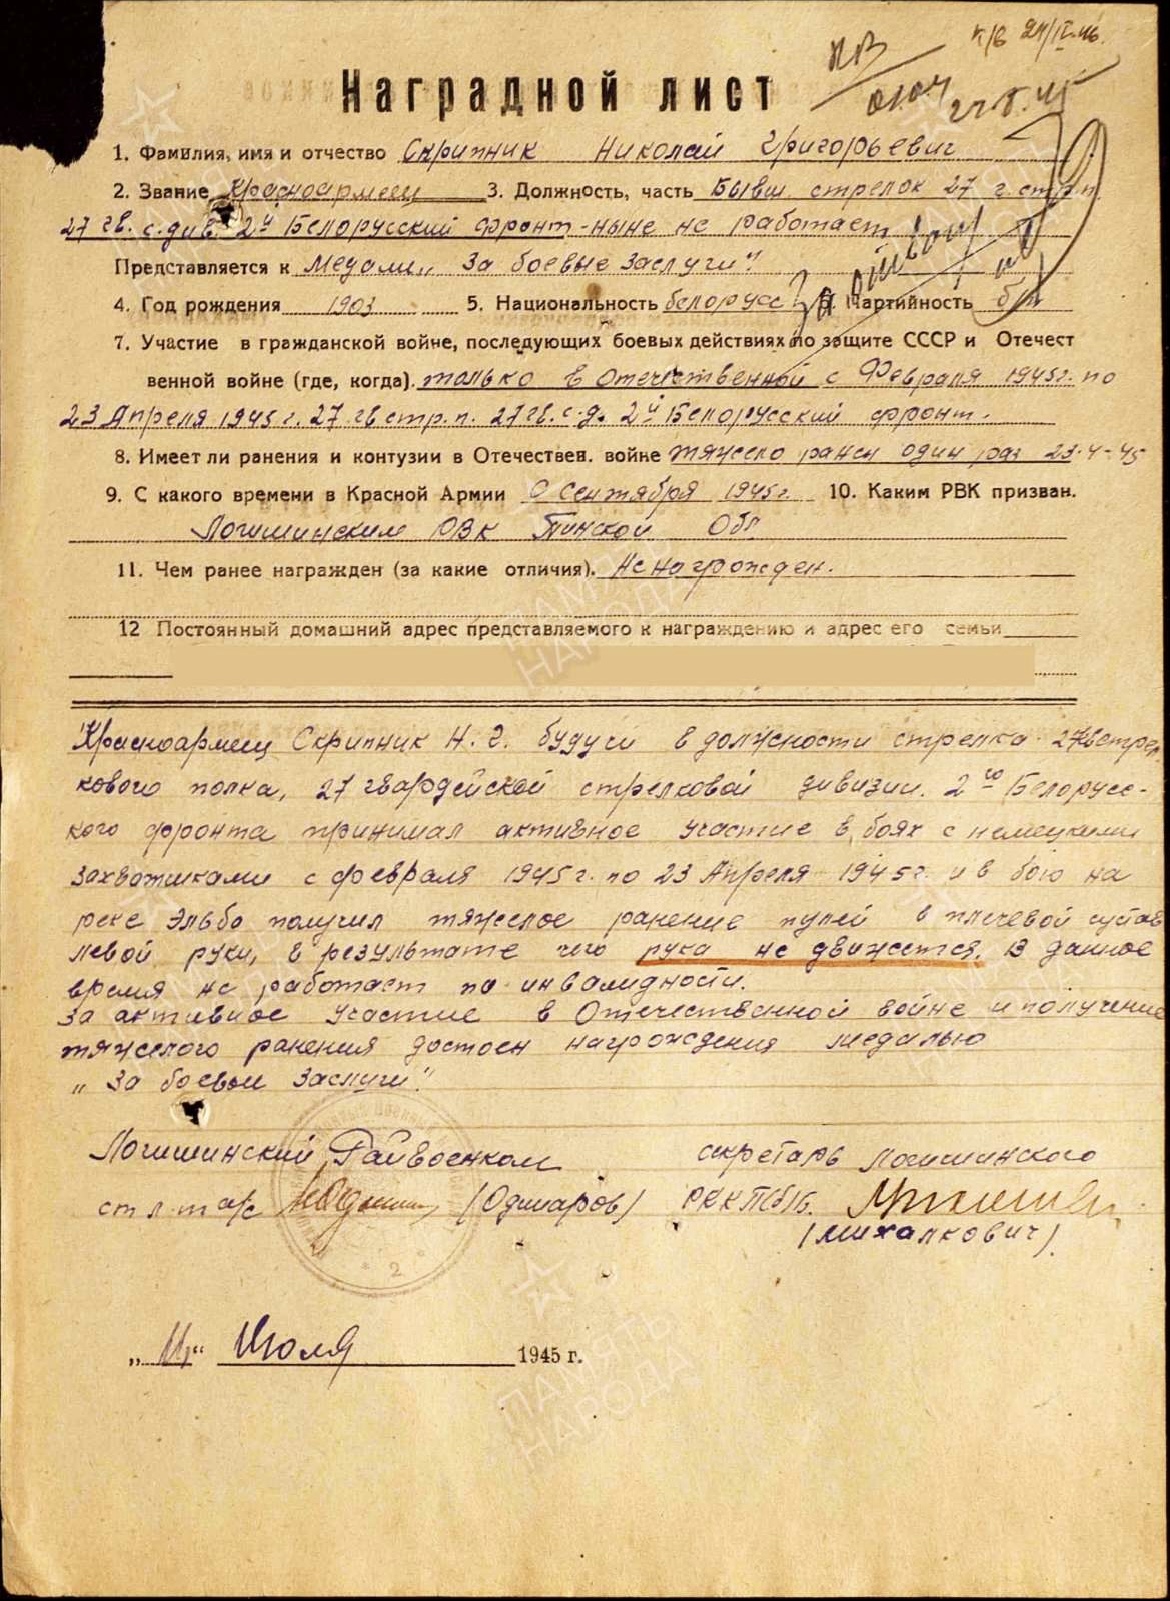 Наградной лист
1. Фамилия, имя и отчество Скрипник Николай Григорьевич
2. Звание Красноармеец 3. Должность, часть Бывш. стрелок 27 г. стр.п.
27 гв. с.див. 2й Белорусский фронт - ныне не работает
Представляется к медали „За боевые заслуги".
4. Год рождения 1903 5. Национальность белорусс 6. Партийность б/п
7. Участие в гражданской войне, последующих боевых действиях по защите СССР и Отечест
венной войне (где, когда). только в Отечественной с Февраля 1945г. по
23 Апреля 1945 г. 27 гв стр.п. 27 гв. с.д. 2й Белорусский фронт.
8. Имеет ли ранения и контузии в Отечествен. войне тяжело ранен один раз 23-4-45
9. С какого времени в Красной Армии С Сентября 1945г. 10. Каким РВК призван.
Логишинским РВК Пинской Обл
11. Чем ранее награжден (за какие отличия). Не награжден.
12 Постоянный домашний адрес представляемого к награждению и адрес его семьи
Красноармеец Скрипник Н. Г. будучи в должности стрелка 27 гв стрел
кового полка, 27 гвардейской стрелковой дивизии. 2го Белорусс-
кого фронта принимал активное участие в боях с немецкими
захватчиками с февраля 1945г. по 23 Апреля 1945г. и в бою на
реке Эльбо получил тяжелое ранение пулей в плечевой сустав
левой руки, в результате чего рука не движется. В данное
время не работает по инвалидности.
За активное участие в Отечественной войне и получение
тяжелого ранения достоен награждения медалью
„За боевые заслуги".
Логишинский Райвоенком секретарь Логишинского
ст л-т а/с (Одшаров) РККПб/Б.
(Михалкович).
Июля 1945 г.
2
ПАМЯТЬ
НАРОДА